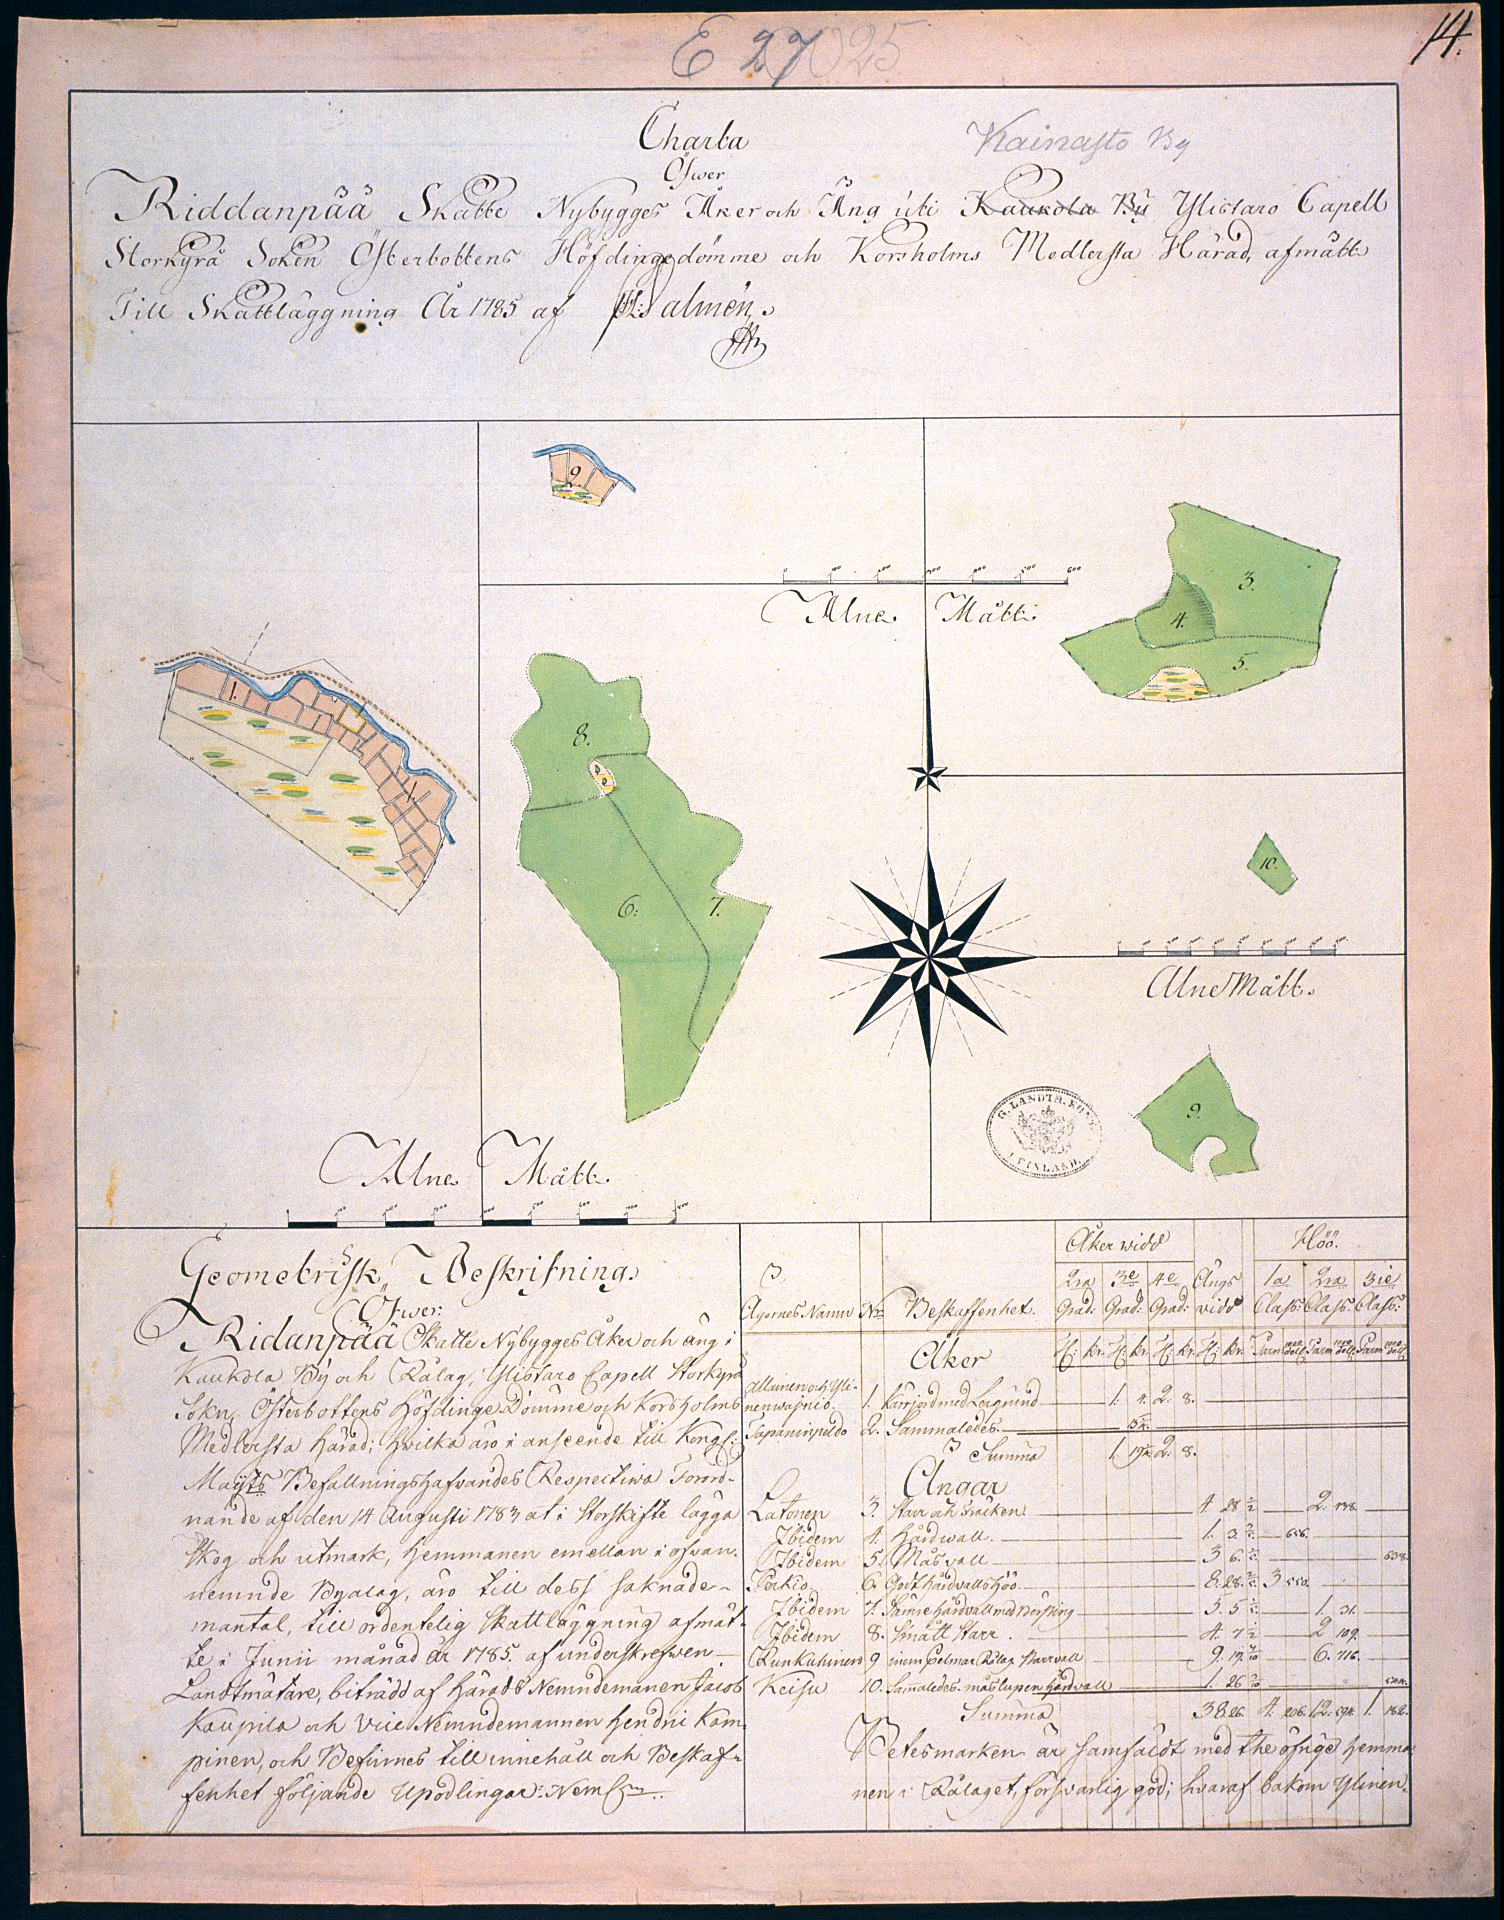 E 27025
14.
Charta
Öfwer
Kainasto By
Riddanpää Skatte Nybygges Åker och Äng uti Kaukola By Ylistaro Capell
Storkyrå Soken Österbottens Höfdingedömme och Korsholms Medlersta Härad, afmätt
Till Skattläggning År 1785 af Salmén.
9.
2.
0 100 200 300 400 500 600
Alne Mått.
3.
4.
5.
1.
1.
8.
6:
7.
10.
Alne Mått.
G. LANDTM. KONT. I FINLAND.
9.
Alne Mått.
Geometrisk Beskrifning
Öfwer:
Ridanpää Skatte Nybygges Åker och äng i
Kaukola By och Rålag, Ylistaro Capell Storkyrå
Sokn, Österbottens Höfdinge Dömme och Korsholms
Medlersta härad; hvilka äro i anseende till Kongl:
Majts Befallningshafvandes Respective Förord-
nande af den 14 Augusti 1783, at i Storskifte lägga
Skog och utmark, hemmanen emellan i ofvan-
nemnde Byalag, äro till dess saknade
mantal, till ordentelig Skattläggning afmät-
te i Junii månad år 1785. af underskrefwen
Landtmätare, biträdd af härads Nemndemannen Jacob
Kaupila och Vice Nemndemannen Hendric Kom-
pinen, och Befinnes till innehåll och Beskaf-
fenhet följande Upodlingar: Neml.
Åker widd Höö.
Ägornes Namn Nr. Beskaffenhet. 2ra Grad: 3e Grad: 4e Grad: Ängs widd 1a Class: 2ra Class: 3ie Class:
Åker
Allainen och Yli-
nenwajnio. 1. Kärrjord med Lergrund 1. 4. 2. 8.
Tapaninpeldo 2. Sammaledes.
Summa 1. 2. 8.
Ängar
Latonen 3. Starr och Fräken 4 28 2.
Ibidem 4. Hårdwall. 1. 3.
Ibidem 5. Måsvall 3 6. 638.
Perkio. 6. Godt hårdvalls höö. 8. 28. 3 550.
Ibidem 7. Sämre hårdvall med 5. 5 1. 31.
Ibidem 8. Smått Starr. 4. 7 2 109.
9 inom Rålag Starrvall 9. 19. 6. 716.
Keisu 10. Samaledes måslupen hårdvall 1. 26
Summa 38. 26. 4. 206. 12. 1.
Betesmarken är samfäldt med the öfrige hemma-
nen i Rålaget, försvarlig god; hvaraf bakom Ylinen-